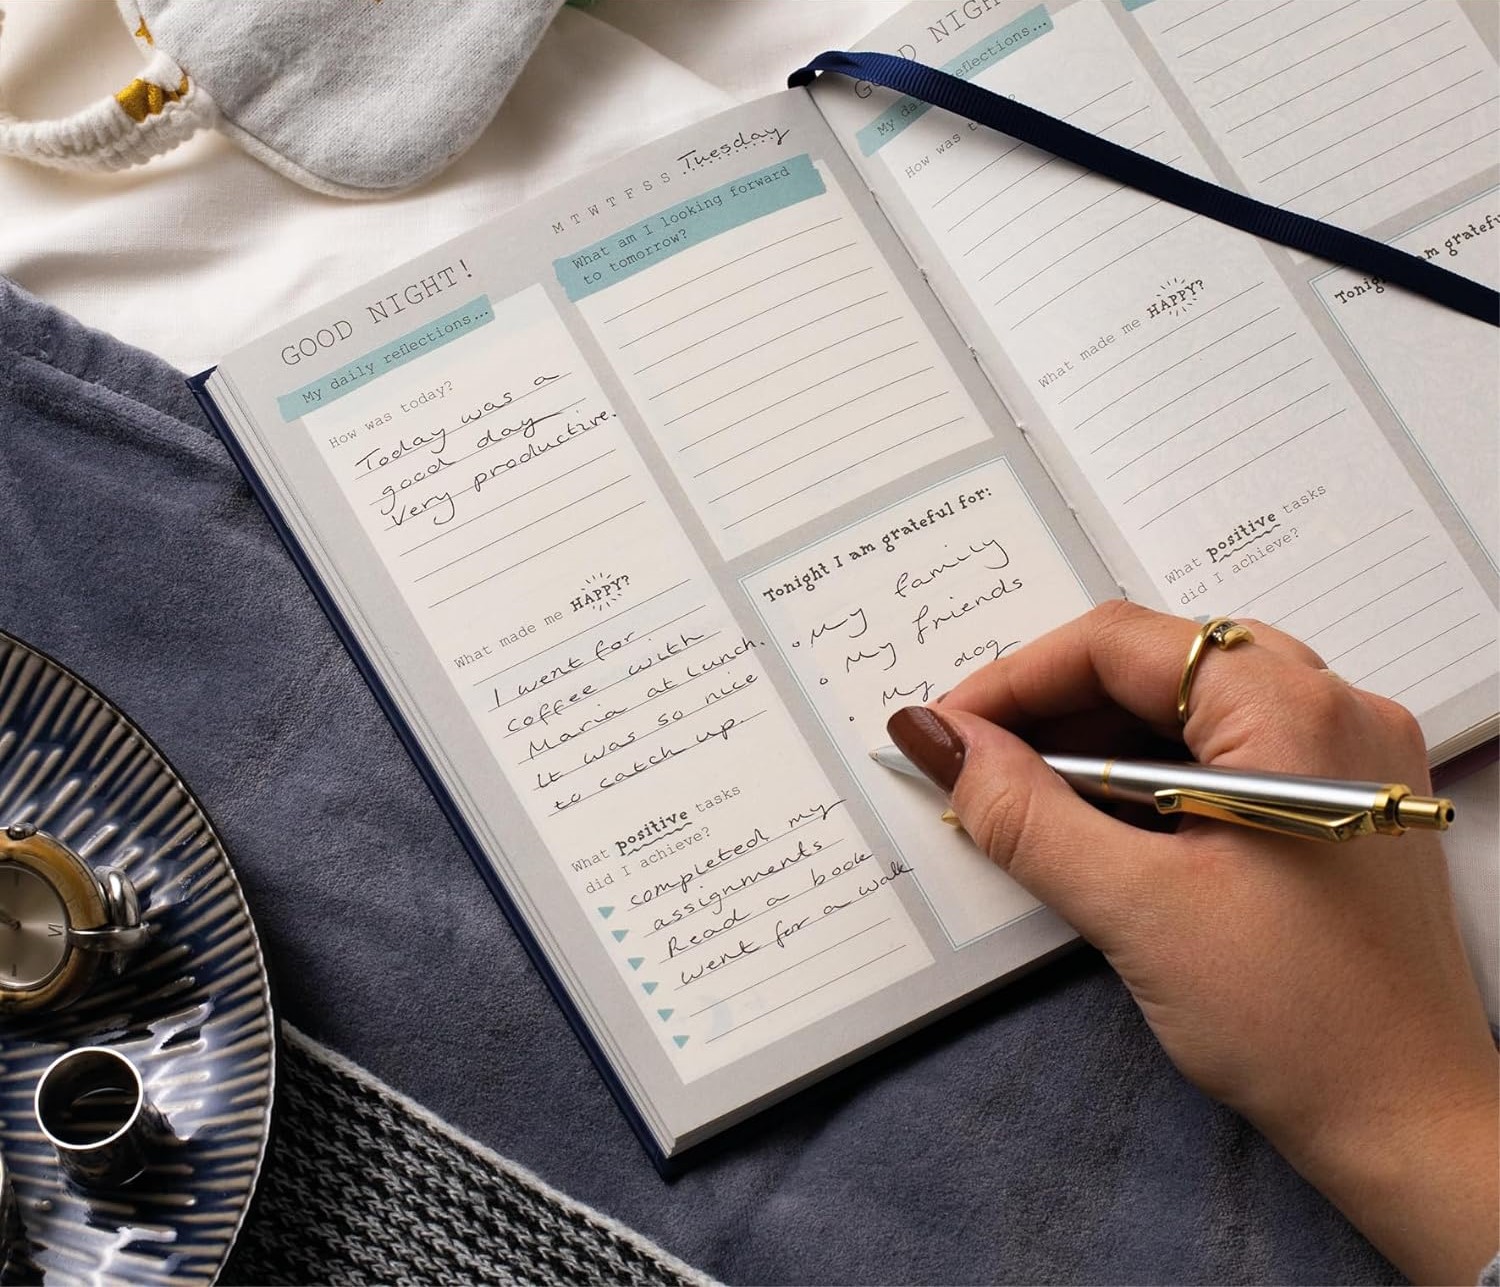 GOOD NIGHT!
M T W T F S S Tuesday
My daily reflections...
How was today?
Today was a
good day
very productive.
What made me HAPPY?
I went for
coffee with
Maria at lunch.
It was so nice
to catch up.
What positive tasks
did I achieve?
completed my
assignments
Read a book
went for a walk
What am I looking forward
to tomorrow?
Tonight I am grateful for:
• My family
• My friends
• My dog
GOOD NIGH
My dai eflections...
How was t ?
What made me HAPPY?
What positive tasks
did I achieve?
Tonig I am gratefu
VI